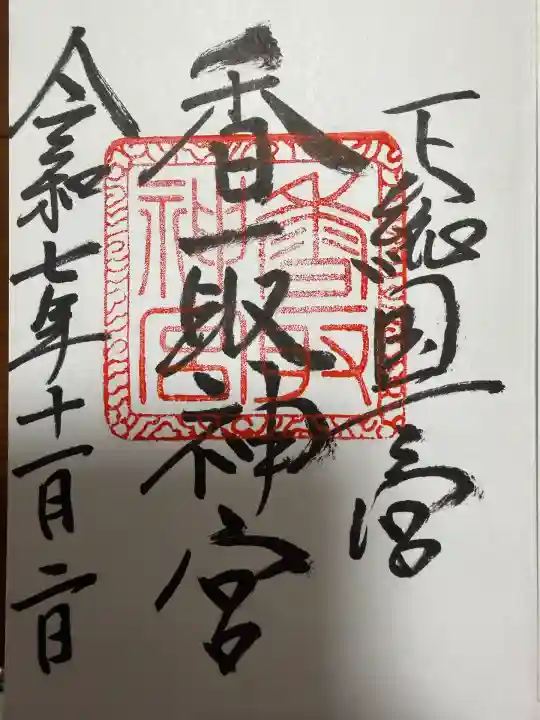 下総国一之宮
香取神宮
香取神宮
令和七年十一月二日